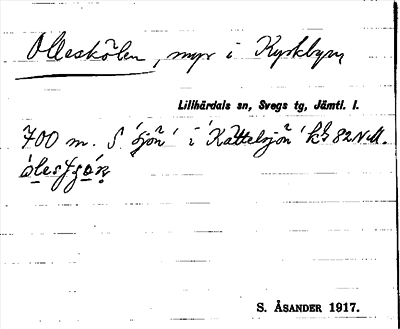 Olleskölen, myr i Kyrkbyn,
Lillhärdals sn, Svegs tg, Jämtl. l.
700 m. S 'sjön' i 'Kättelsjön' kb 82 N.M.
S. ÅSANDER 1917.